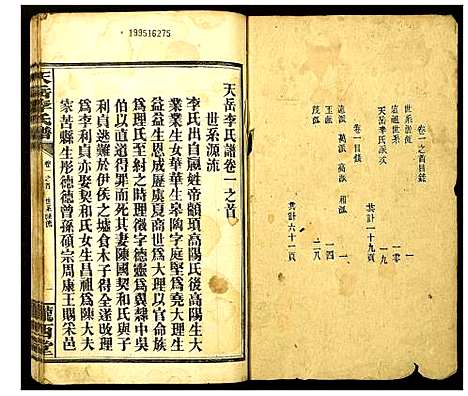 卷一之首目錄
世系源流 一
遠祖世系 一〇
天岳李氏派次
共計一十九頁
卷一目錄
萬派 和派 一
玉派 一四
茂派 二八
共計六十一頁
199516275
天岳李氏譜卷一之首
世系源流
李氏出自嬴姓帝顓頊高陽氏後高陽生大
業業生女華華生皋陶字庭堅爲堯大理生
益益生恩成歷虞夏商世爲大理以官命族
爲理氏至紂之時理徵字德靈爲翼隸中吳
伯以直道不容得罪而死其妻陳國契和氏與子
利貞逃難於伊侯之墟食木子得全遂改理
爲李利貞亦娶契和氏女生昌祖爲陳大夫
家苦縣生彤德德曾孫碩宗周康王賜采邑
天岳李氏譜
卷一之首 世系源流
隴西堂